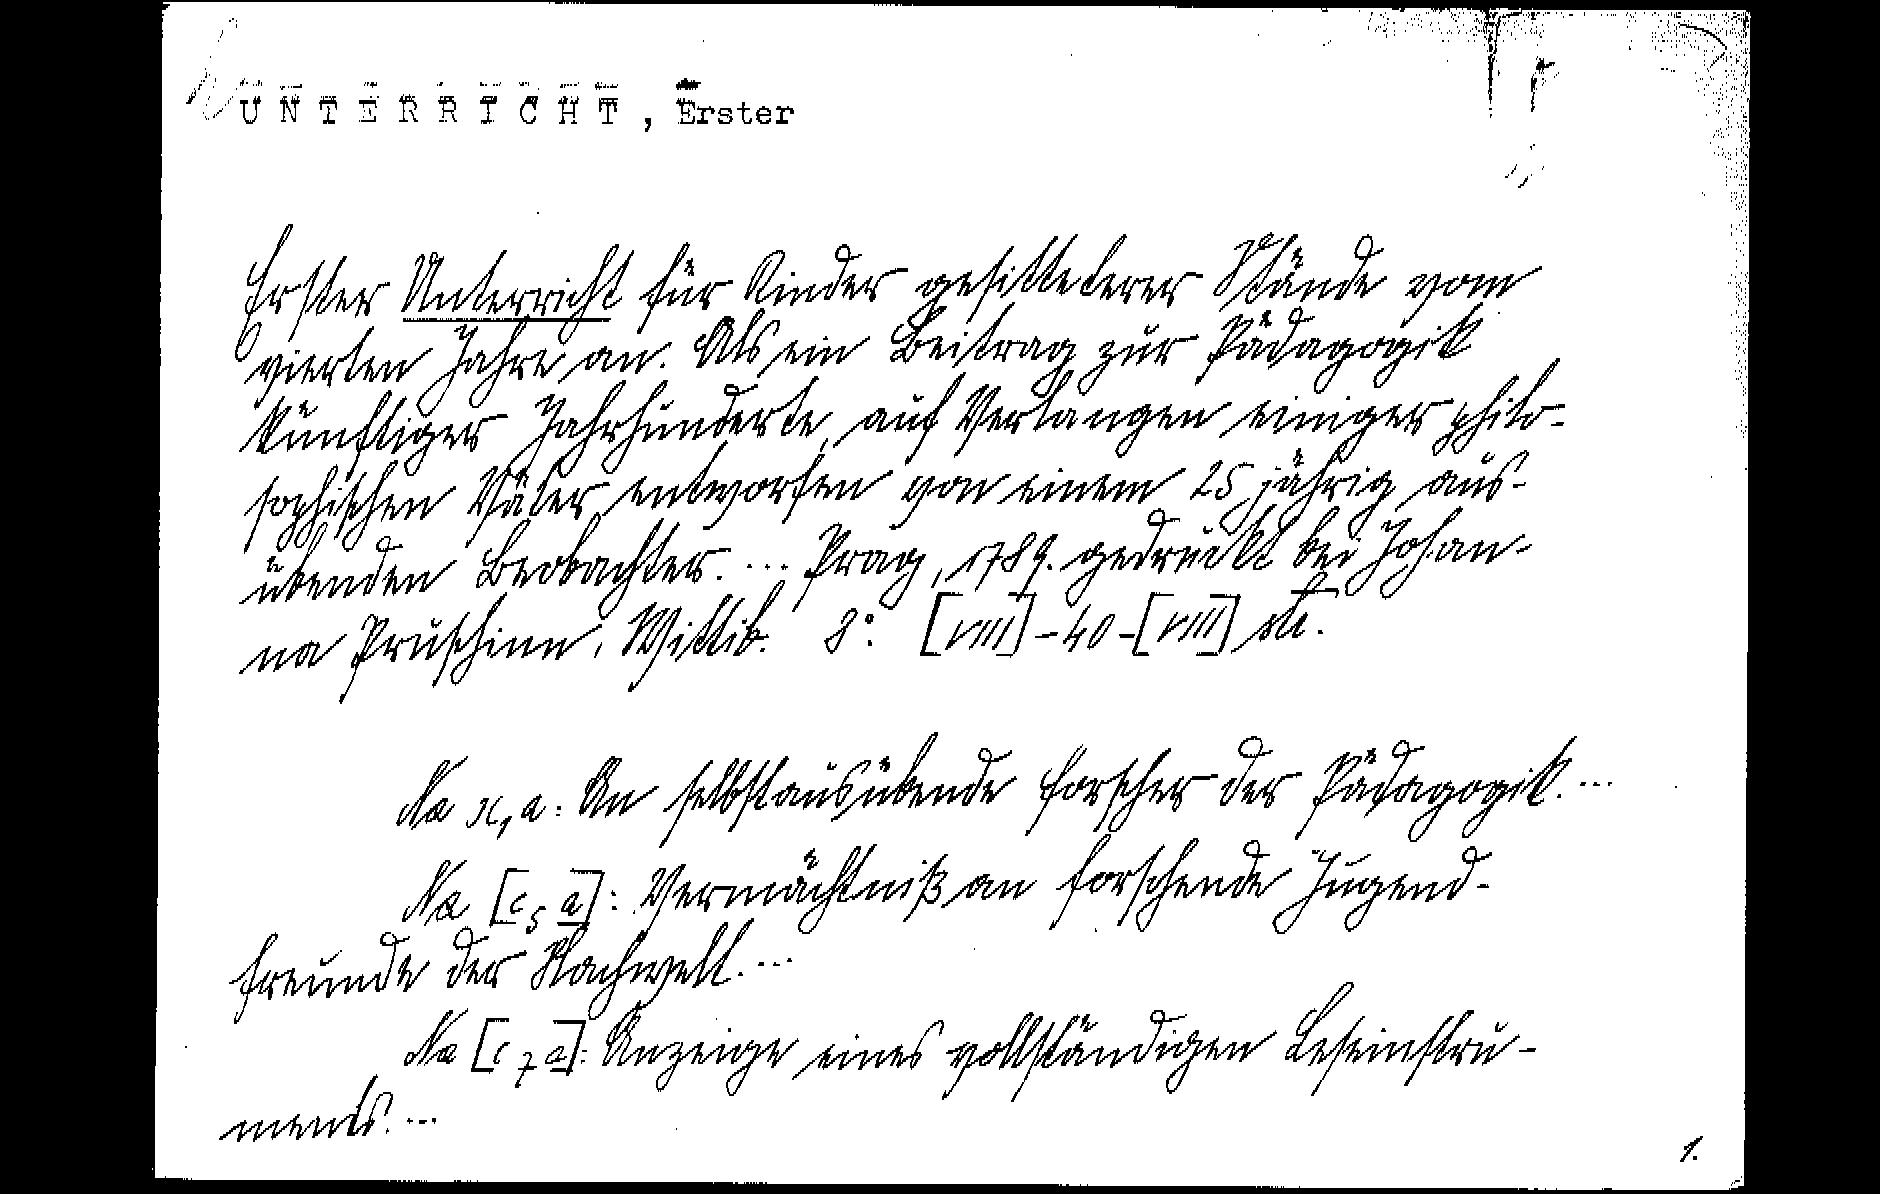 UNTERRICHT, Erster
Erster Unterricht für Kinder gesitteterer Stände vom
vierten Jahre an. Als ein Beitrag zur Pädagogik
künftiger Jahrhunderte, auf Verlangen einiger philo-
sophischen Väter entworfen von einem 25 jährig aus-
übenden Beobachter. ... Prag, 1789. gedruckt bei Johan-
na Pruschinn, Wittib. 8°. [VIII]-40-[VIII] str.
Na x,a: An selbstausübende Forscher der Pädagogik. ...
Na [c5a]: Vermächtniß an forschende Jugend-
freunde der Nachwelt. ...
Na [c7a]: Anzeige eines vollständigen Leseinstru-
ments. ...
1.